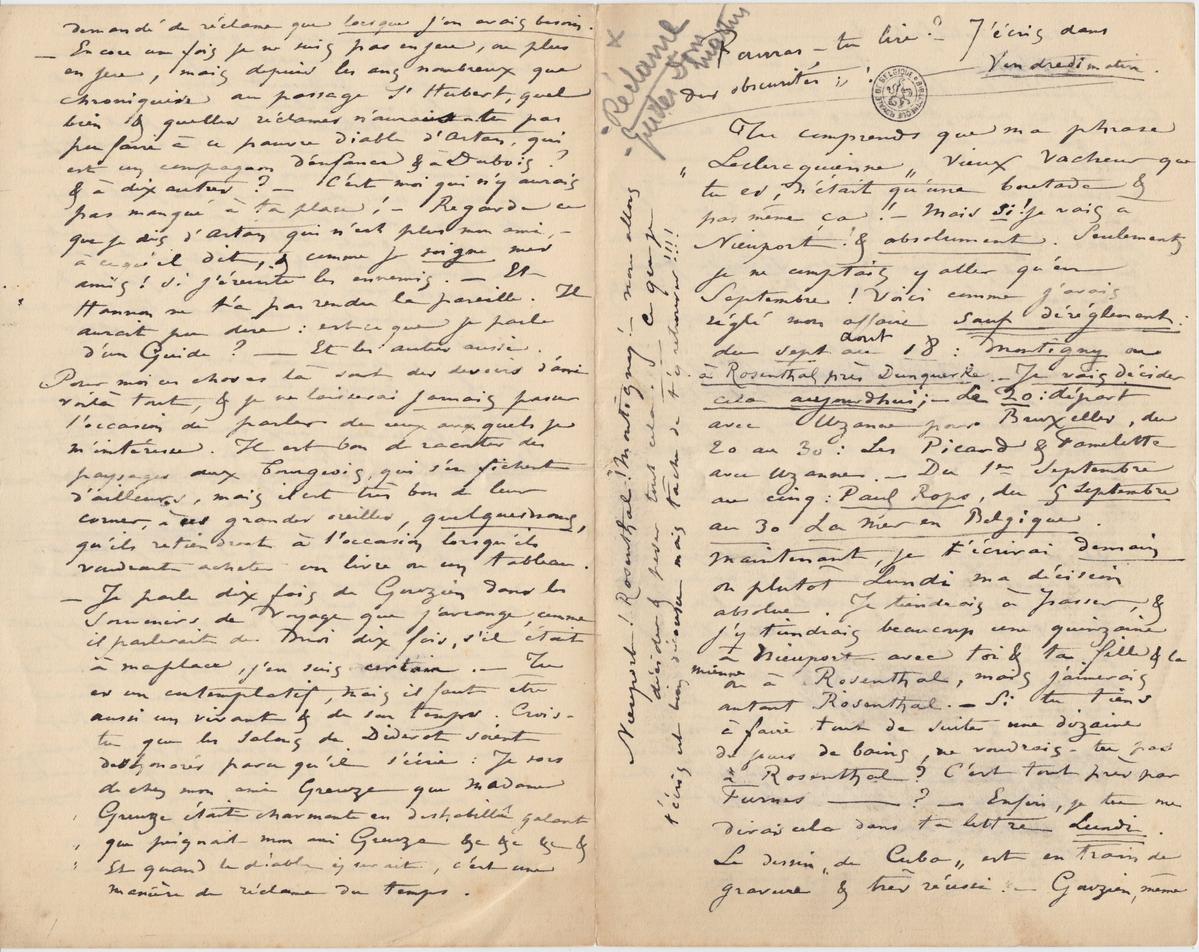 demandé de réclame que lorsque j'en avais besoin.
— Encore une fois je ne suis pas en jeu, ou plus
en jeu, mais depuis les ans nombreux que
chroniquise au passage St Hubert, quel
bien & quelles réclames n'aurais tu pas
pu faire à ce pauvre diable d'Artan, qui
est un compagnon d'enfance & à Dubois ?
& à dix autres ? — C'est moi qui n'y aurais
pas manqué à ta place ! — Regarde ce
que je dis d'Artan qui n'est plus mon ami, —
à ce qu'il dit, & comme je soigne mes
amis ! si j'éreinte les ennemis. — Et
Hannon ne t'a pas rendu la pareille. Il
aurait pu dire : est-ce que je parle
d'un Guide ? — Et les autres aussi.
Pour moi ces choses là sont des devoirs d'ami
voilà tout, & je ne laisserai jamais passer
l'occasion de parler de ceux auxquels je
m'intéresse. Il est bon de raconter des
paysages aux bourgeois, qui s'en fichent
d'ailleurs, mais il est très bon de leur
corner, à ces grandes oreilles, quelques noms,
qu'ils retiendront à l'occasion lorsqu'ils
voudront acheter un livre ou un tableau.
— Je parle dix fois de Gouzien dans les
Souvenirs de Voyage que j'arrange, comme
il parlerait de moi dix fois, s'il était
à ma place, j'en suis certain. — Tu
es un contemplatif, mais il faut être
aussi un vivant & de son temps. Crois-
tu que les Salons de Diderot soient
déshonorés parce qu'il s'écrie : Je sors
de chez mon ami Greuze que madame
Greuze était charmante en deshabillé galant
que peignait mon ami Greuze &c &c &c &
Et quand le diable y serait, c'est une
manière de réclame du temps.
× Réclame
- Guides
Dom
Martin
Pourras-tu lire ? J'écris dans
des obscurités ;, !
Vendredi matin.
Tu comprends que ma phrase
„ Leclercquienne „ vieux vacheur que
tu es, n'était qu'une boutade &
pas même ça ! — Mais si ! je vais à
Nieuport ! & absolument. Seulement
je ne comptais y aller qu'en
Septembre ! Voici comme j'avais
réglé mon affaire sauf déréglement :
du sept au 18 août : Montigny ou
à Rosenthal près Dunquerke. — Je vais décider
cela aujourd'hui ; — Le 20 : départ
avec Uzanne pour Bruxelles, du
20 au 30 : Les Picard & Famelette
avec Uzanne. — Du 1er Septembre
au cinq : Paul Rops, du 5 Septembre
au 30 La Mer en Belgique.
Maintenant, je t'écrirai demain
ou plutôt Lundi ma décision
absolue. Je tiendrais à passer, &
j'y tiendrais beaucoup une quinzaine
à Nieuport avec toi & ta fille & la
mienne ou à Rosenthal, mais j'aimerais
autant Rosenthal. — Si tu tiens
à faire tout de suite une dizaine
de jours de bains, ne voudrais-tu pas
à Rosenthal ? C'est tout près par
Furnes — ? — Enfin, je tu me
diras cela dans ta lettre Lundi.
Le dessin „ de Cuba „ est en train de
gravure & très réussi ! — Gouzien, même
Nieuport ! Rosenthal ! Montigny ! — nous allons
décider & peser tout cela ! — ce que je
t'écris est bien décousu mais tâche de t'y retrouver !!!!
BIBLIOTHEQUE ROYALE DE BELGIQUE